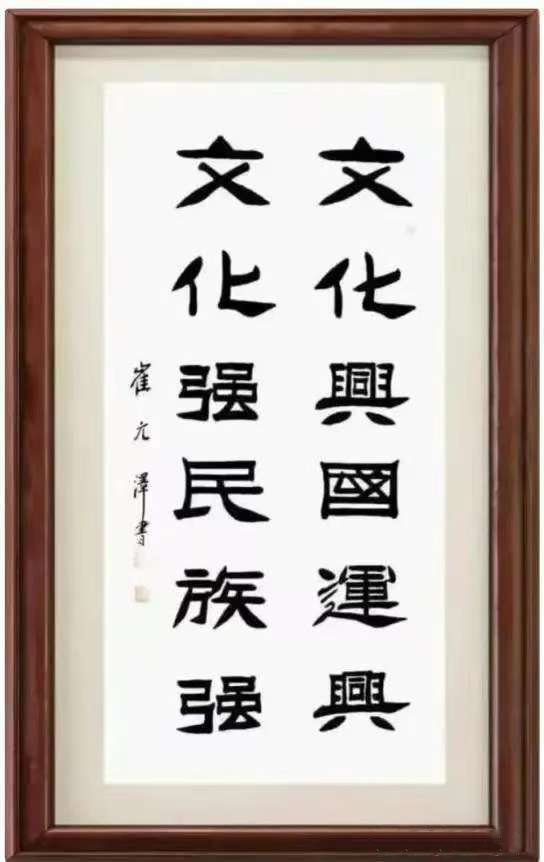 文化興國運興
文化强民族强
崔六澤書